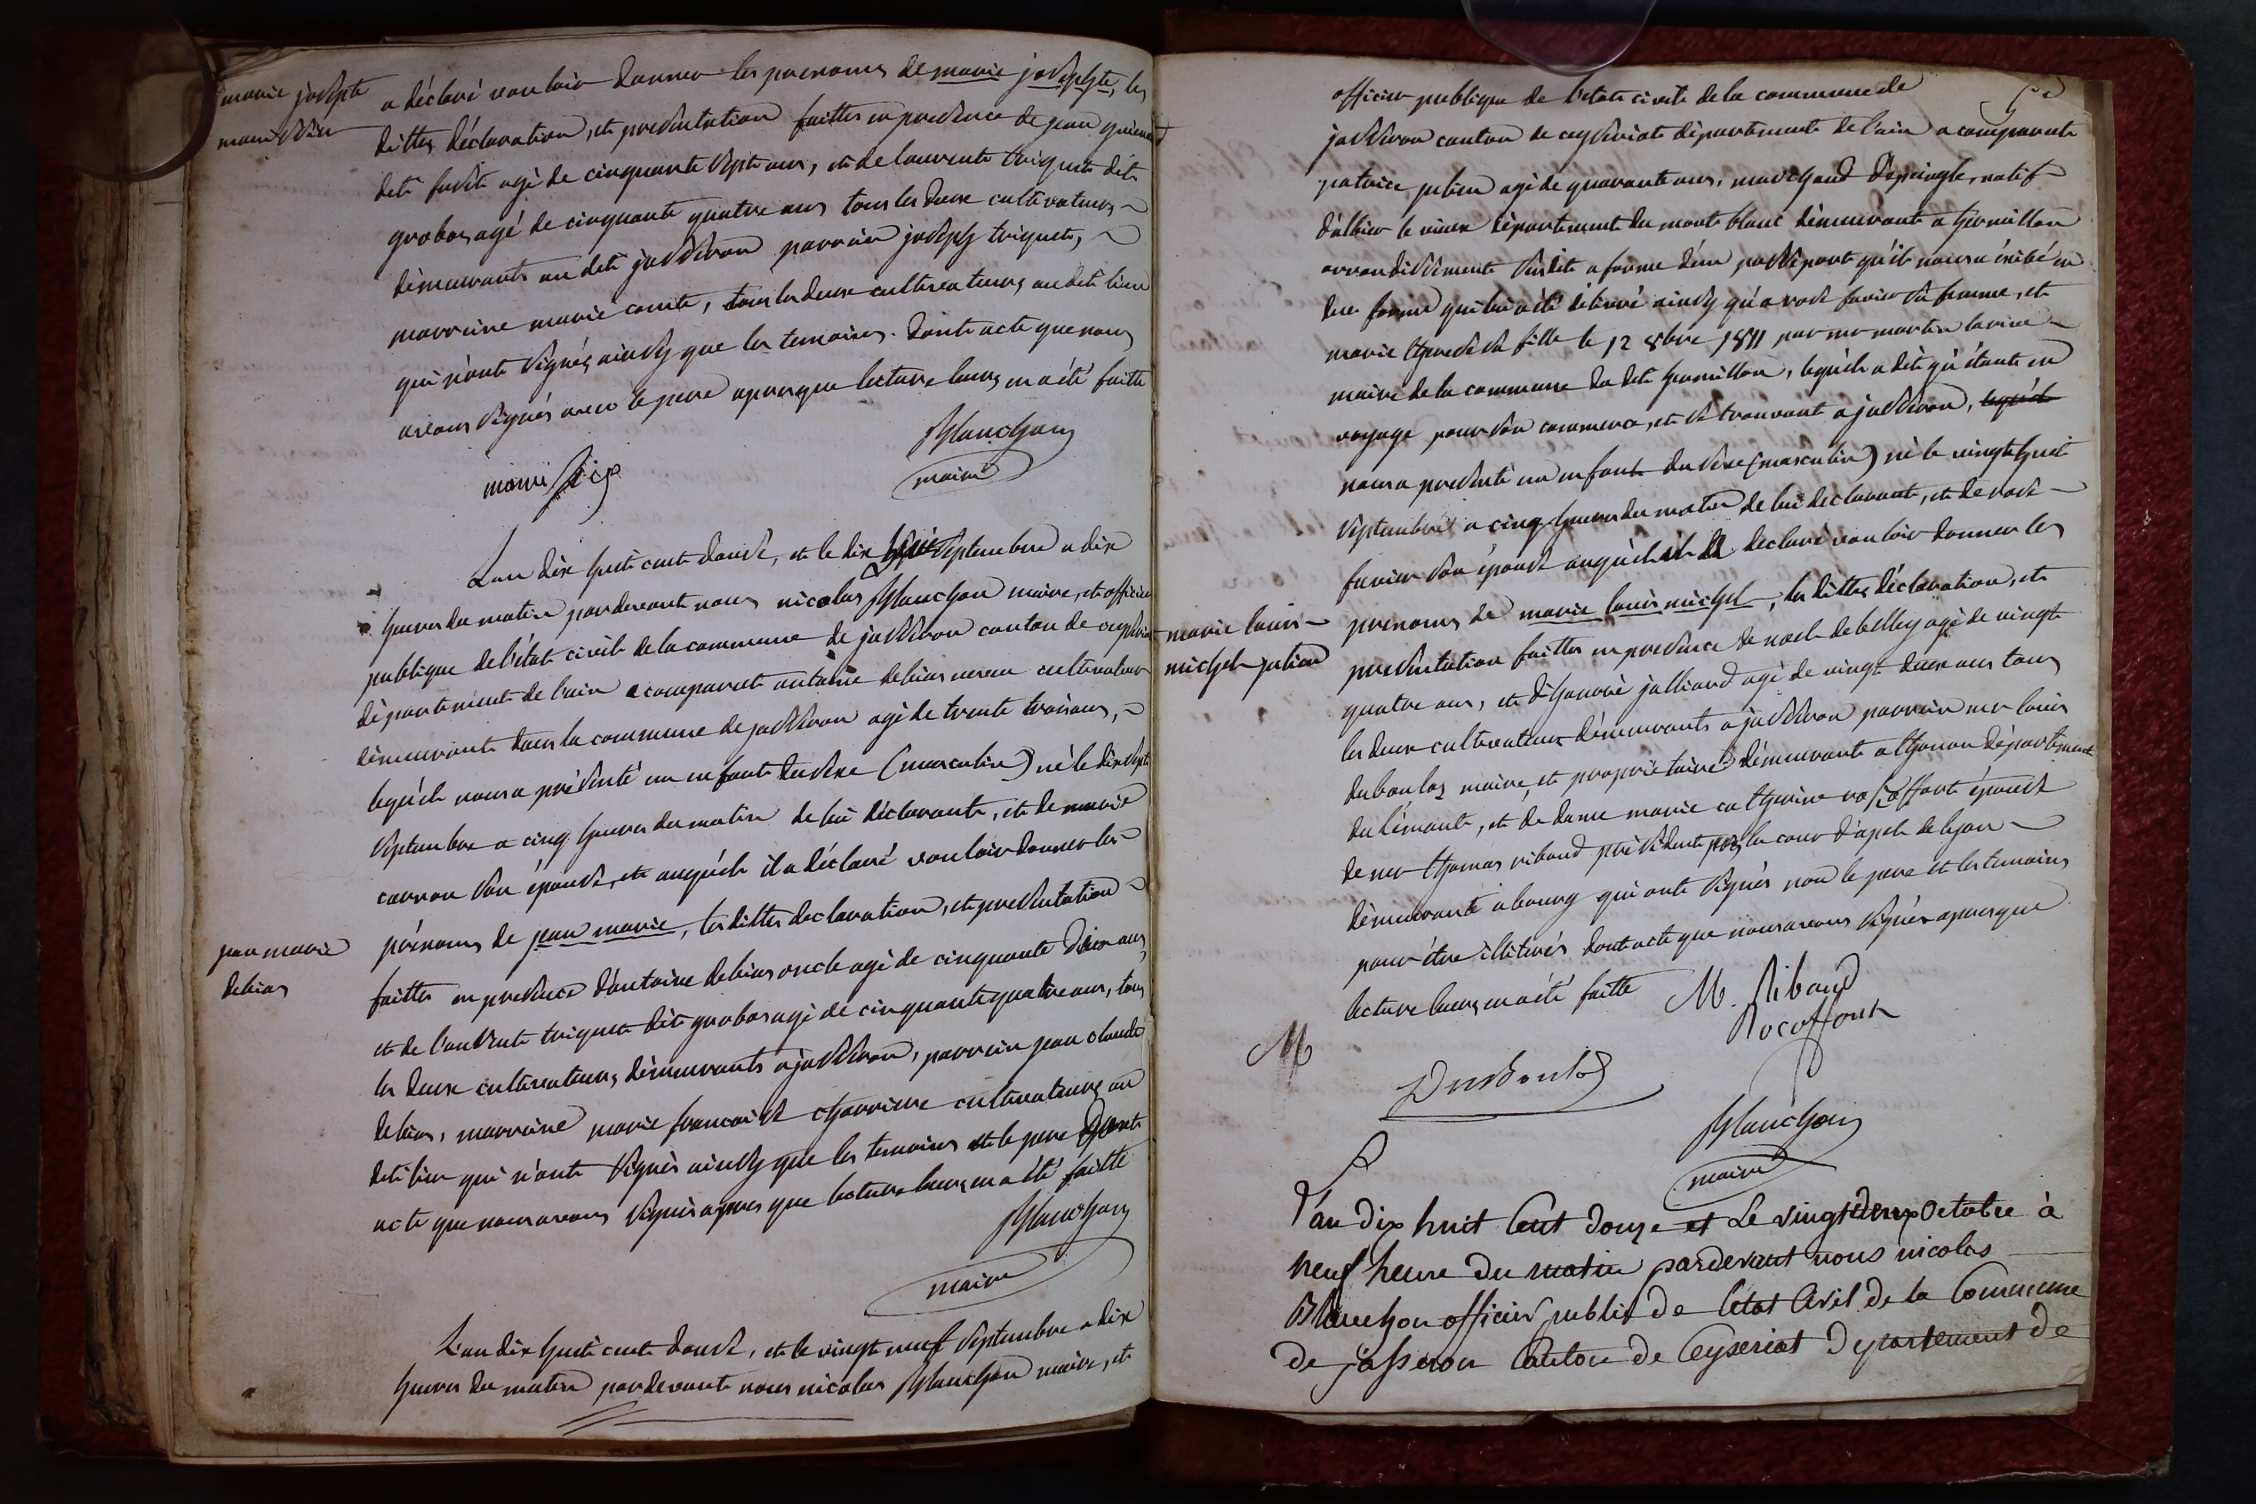 marie josephte
a déclaré vouloir donner les prenoms de marie josephte, les
dittes déclaration, et presentation faittes en presence de jean
dett agé de cinquante sept ans, et de laurent triquet dett
grobas agé de cinquante quatre ans tous les deux cultivateurs
démeurants au dett jasseron parrain joseph triquet,
marraine marie comte, tous les deux cultivateurs au dett lieu
qui n'ont signés ainsy que les temoins. dont acte que nous
avons signés avec le pere apres que lecture leurs en a été faitte
Blanchon
maire
L'an dix huit cent douse, et le dix septembre a dix
heures du matin pardevant nous nicolas Blanchon maire, et officier
publique de l'état civil de la commune de jasseron canton de
département de l'ain a comparut antoine debias neveu cultivateur
démeurant dans la commune de jasseron agé de trente trois ans,
lequél nous a présenté un enfant du séxe (masculin) né le dix sept
septembre a cinq heures du matin de lui déclarant, et de marie
carron son épouse, et auquél il a déclaré vouloir donner les
jean marie
debias
prénoms de jean marie, les dittes declaration, et presentation
faittes en presence d'antoine debias oncle agé de cinquante deux ans,
et de laurent triquet dét grobas agé de cinquante quatre ans, tous
les deux cultivateurs démeurants a jasseron, parrain jean claude
debias, marraine marie francoise charriere cultivateurs au
dett lieu qui n'ont signés ainsy que les temoins et le pere dont
acte que nous avons signés apres que lecture leurs en a été faitte
Blanchon
maire
L'an dix huit cent douse, et le vingt neuf septembre a dix
heures du matin pardevant nous nicolas Blanchon maire, et
officier publique de l'état civile de la commune de
jasseron canton de ceyseriat département de l'ain a comparut
patrice julien agé de quarante ans, marchand d'epingle, natif
d'albier le vieux département du mont blanc démeurant a hermillon
arrondissement susdit a forme d'un passeport qu'il nous a exibé en
due forme qui lui a été délivré ainsy qu'a rose favier sa femme, et
marie therese sa fille le 12 8bre 1811 par mr martin
maire de la commune du dett hermillon, lequél a dét qu'étant en
voyage pour son commerce, et se trouvant a jasseron, lequél
nous a presenté un enfant du séxe (masculin) né le vingt huit
septembre a cinq heures du matin de lui declarant, et de rose
favier son épouse auquél il a declaré vouloir donner les
marie louis
michel julien
prenoms de marie louis michel, les dittes déclaration, et
presentation faittes en presence de noel debelley agé de vingt
quatre ans, et d'honoré julliard agé de vingt deux ans tous
les deux cultivateurs démeurants a jasseron parrain mr louis
dubouloz maire, et proprietaire démeurant a thonon département
du léman, et de dame marie catherine rocoffort épouse
de mr thomas riboud président la cour d'apel de lyon
démeurant a bourg qui ont signés non le pere et les temoins
pour être illiturés dont acte que nous avons signés apres que
lecture leurs en a été faitte
M. Riboud
Rocoffort
M
Dubouloz
Blanchon
maire
L'an dix huit Cent douze et Le vingt deux Octobre à
neuf heure du matin pardevant nous nicolas
Blanchon officier public de l'état Civil de la Commune
de jasseron Canton de Ceyseriat Departement de